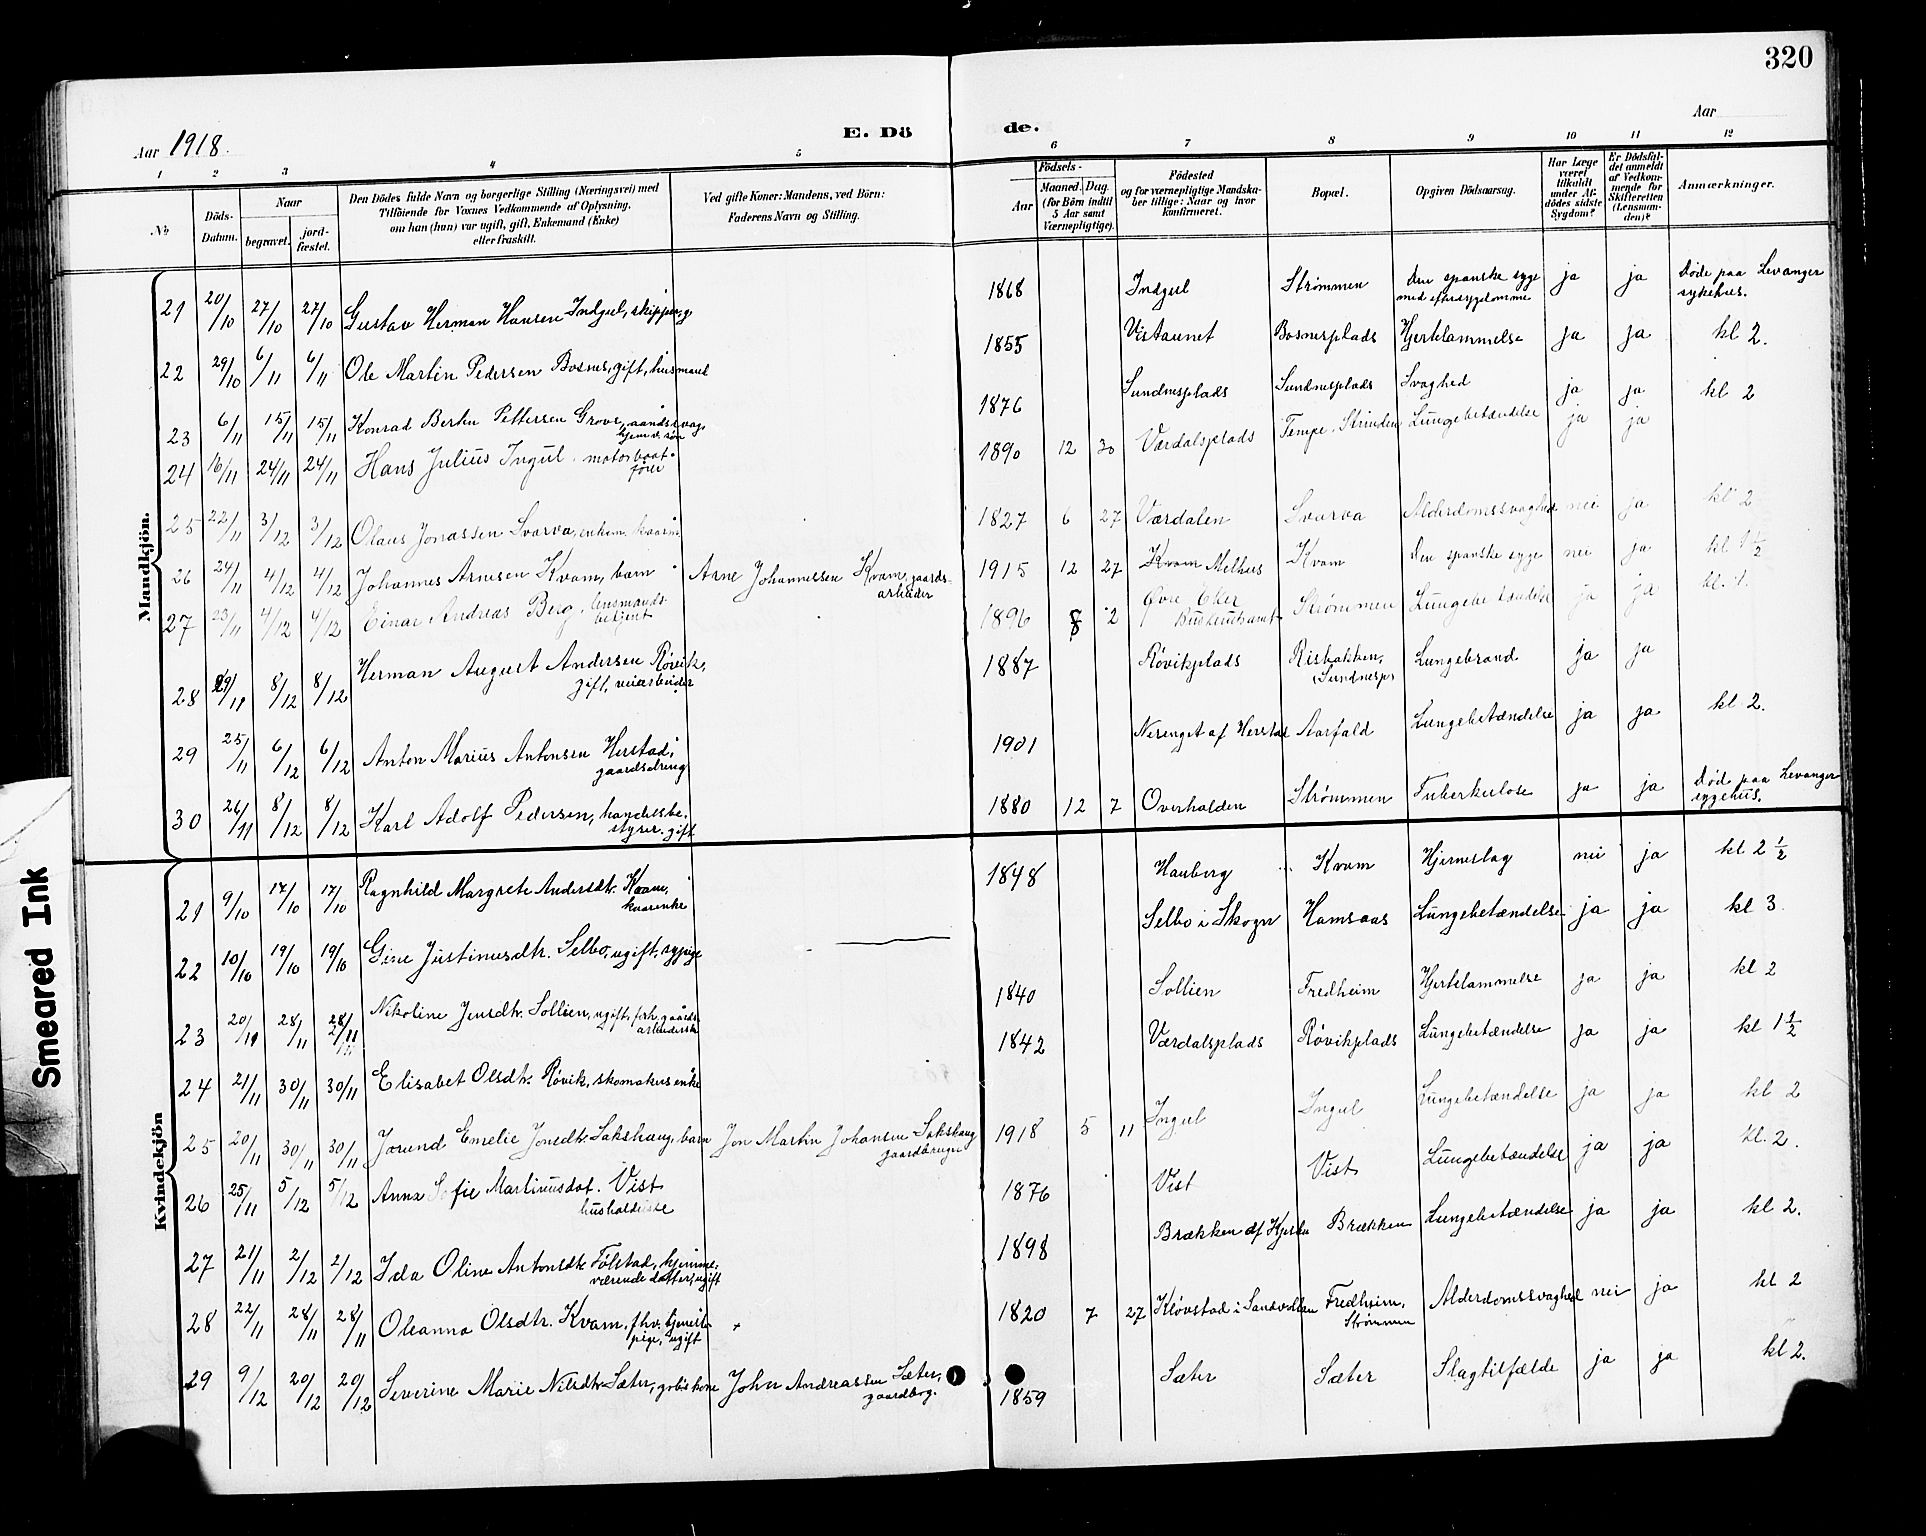 320
Aar 1918.
E. Dö
de.
Aar
1 2 3 4 5 6 7 8 9 10 11 12
No
Döds-Datum.
Naar
begravet.
jord-fæstet.
Den Dödes fulde Navn og borgerlige Stilling (Næringsvei) med
Tilföiende for Voxnes Vedkommende af Oplysning,
om han (hun) var ugift, gift, Enkemand (Enke)
eller fraskilt.
Ved gifte Koner: Mandens, ved Börn:
Faderens Navn og Stilling.
Födsels-
Aar
Maaned. Dag.
(for Börn indtil
5 Aar samt
Værnepligtige).
Födested
og for værnepligtige Mandska-
ber tillige: Naar og hvor
konfirmeret.
Bopæl.
Opgiven Dödsaarsag.
Har Læge
været
tilkaldt
under Af-
dödes sidste
Sygdom?
Er Dödsfal-
det anmeldt
af Vedkom-
mende for
Skifteretten
(Lensman-
den)?
Anmærkninger.
Mandkjön.
21 20/10 27/10 27/10 Gustav Herman Hansen Indgul, skipper, g. 1868 Indgul Strømmen Den spanske syge med eftersygdomme ja ja Døde paa Levanger sykehus.
22 29/10 6/11 6/11 Ole Martin Pedersen Bosnes, gift, husmand 1855 Vistaunet Bosnesplads Hjertelammelse ja ja kl 2.
23 6/11 15/11 15/11 Konrad Bertin Pettersen Grove, aandssvag, hjemv. søn 1876 Sundnesplads Sundnesplads Svaghed ja ja kl 2
24 16/11 24/11 24/11 Hans Julius Ingul. motorbaat-fører 1890 12 30 Værdalsplads Tempe. Strinden Lungebetændelse ja ja
25 22/11 3/12 3/12 Olaus Jonassen Svarva, enkem. kaarm. 1827 6 27 Værdalen Svarva Alderdomssvaghed nei ja kl 2
26 24/11 4/12 4/12 Johannes Arnesen Kvam, barn Arne Johannessen Kvam, gaards-arbeider 1915 12 27 Kvam Melhus Kvam Den spanske syge nei ja kl 1 1/2
27 23/11 4/12 4/12 Einar Andreas Berg, lensmands-betjent 1896 8 2 Øvre Eker Buskerudsamt Strømmen Lungebetændelse ja ja kl. 1.
28 29/11 8/12 8/12 Herman August Andersen Røvik, gift, veiarbeider 1887 Røvikplads Risbakken, Sundnesp. Lungebrand ja ja
29 25/11 6/12 6/12 Anton Marius Antonsen Herstad, gaardsdreng 1901 Nerenget af Herstad Aarfald Lungebetændelse ja ja kl 2.
30 26/11 8/12 8/12 Karl Adolf Pedersen, handelsbe-styrer. gift 1880 12 7 Overhalden Strømmen Tuberkulose ja ja Død paa Levanger sygehus.
Kvindekjön
21 9/10 17/10 17/10 Ragnhild Margrete Andersdtr. Kvam, kaarenke 1848 Hauberg Kvam Hjerneslag nei ja kl 2 1/2
22 10/10 19/10 19/10 Gine Justinusdtr. Selbo, ugift, sypige Selbo i Skogn Hamsaas Lungebetændelse ja ja kl 3
23 20/11 28/11 28/11 Nikoline Jensdtr. Sollien, ugift, forh. gaards-arbeiderske 1840 Sollien Fredheim Hjertelammelse ja ja kl 2
24 21/11 30/11 30/11 Elisabet Olsdtr. Røvik, skomakerenke 1842 Værdalsplads Røvikplads Lungebetændelse ja ja kl 1 1/2
25 20/11 30/11 30/11 Jorund Emelie Jonsdtr. Sakshaug, barn Jon Martin Johansen Sakshaug gaardbruger 1918 5 11 Ingul Ingul Lungebetændelse ja ja kl 2
26 25/11 5/12 5/12 Anna Sofie Martinusdat. Vist husholderske 1876 Vist Vist Lungebetændelse ja ja kl. 2.
27 21/11 2/12 2/12 Ida Oline Antonsdtr. Følstad, hjemme-værende datter, ugift 1898 Brækken af Brækken Lungebetændelse ja ja kl 2.
28 22/11 28/11 28/11 Oleanna Olsdtr. Kvam, fhv. tjeneste-pige, ugift 1820 7 27 Kløvstad i Sandvollan Fredheim, Strømmen Alderdomssvaghed nei ja kl 2
29 9/12 20/12 20/12 Severine Marie Nilsdtr. Sæter, gbr.s kone John Andreassen Sæter, gaardbrg. 1859 Sæter Sæter Slagtilfælde ja ja kl 2.
Smeared Ink